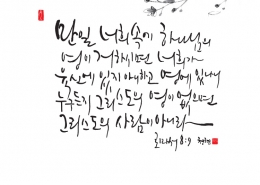 만일 너희 속에 하나님의
영이 거하시면 너희가
육신에 있지 아니하고 영에 있나니
누구든지 그리스도의 영이 없으면
그리스도의 사람이 아니라
로마서 8:9